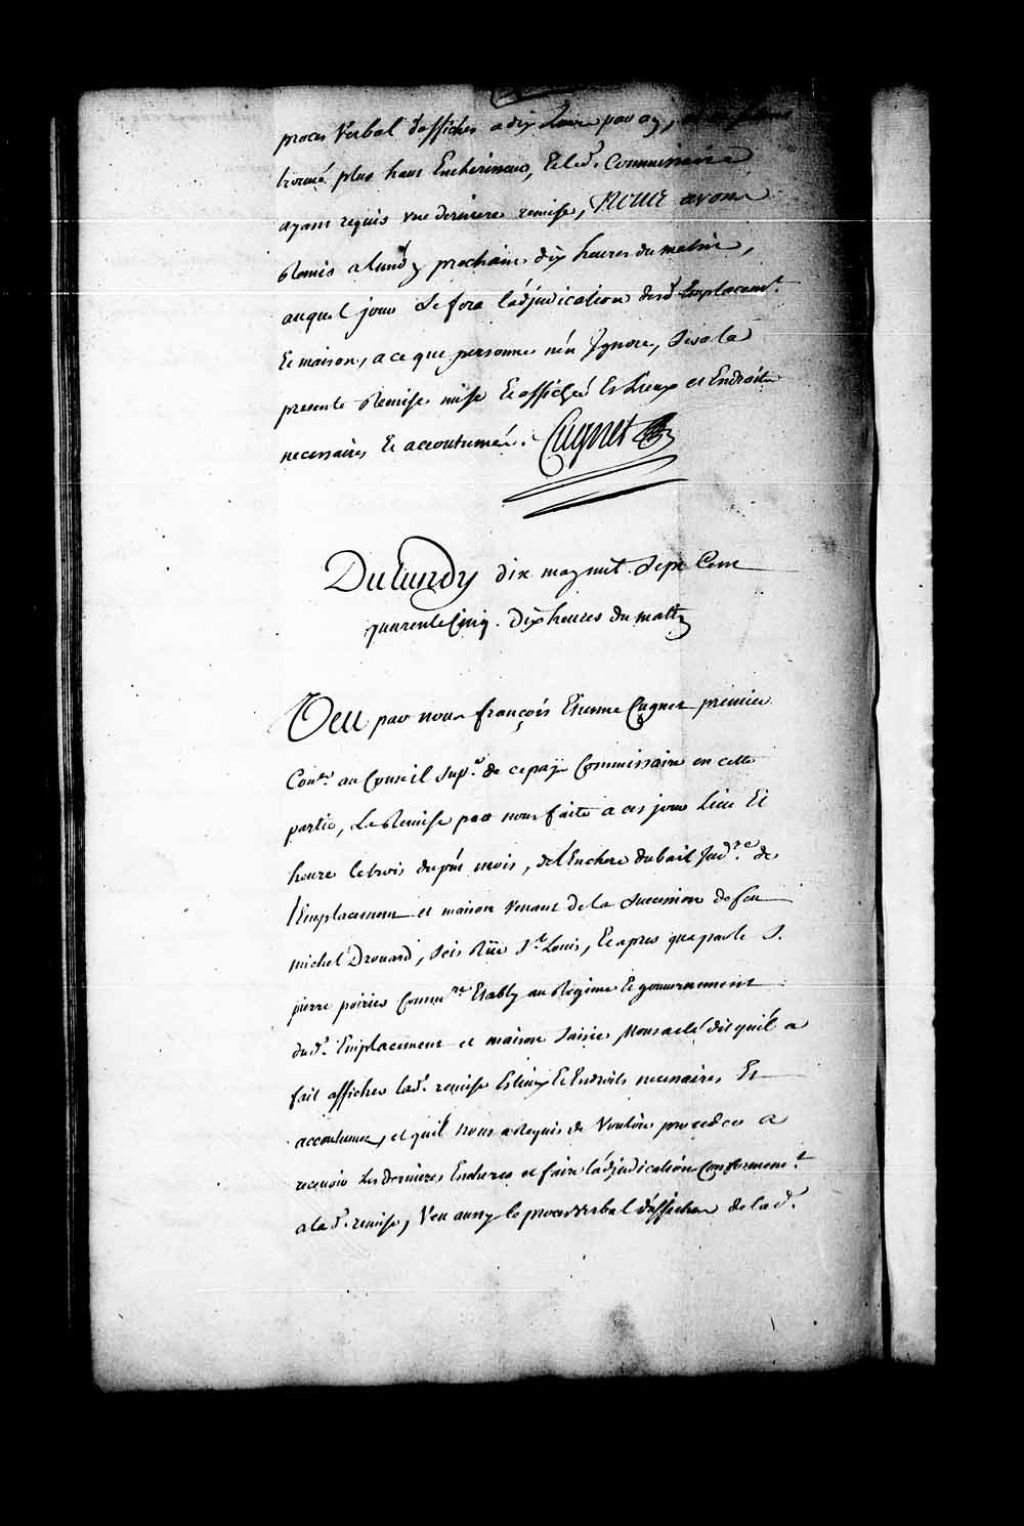 proces Verbal daffiches a dix Livres par an, et
trouvé plus haut Encherisseur, Et led.t Commissaire
ayant requis une derniere remise, NOUS avons
Remis a lundy prochain dix heures du matin,
auquel jour Se fera l'adjudication desd. Emplacem.t
Et maison, a ce que personne n'en Jgnore, Sera la
presente Remise mise Et affichée Es Lieux et Endroits
necessaires Et accoutumés. Cugnet
Du Lundy dix may mil Sept Cent
quarente Cinq. Dix heures du matin
Veu par nous françois Etienne Cugnet premier
Con.er au Conseil Sup.r de ce païs Commissaire en cette
partie, La Remise par nous faite a ces jour Lieu Et
heure le trois du pnt mois, de l'Enchere du bail Jud.re de
l'Emplacement et maison Venant de la Succession de feu
michel Drouard, Scis Rüe S.t Louis, Et apres que par le S.
pierre poirier Comm.re Etably au Regime Et gouvernement
dud. Emplacement et maison Saisie Nous a Eté dit qu'il a
fait afficher lad. remise Es lieux Et Endroits necessaires Et
accoutumez, et qu'il nous a Requis de Vouloir proceder a
recevoir Les dernieres Encheres et faire l'adjudication Conformem.t
a lad. remise, Veu aussy le proces verbal d'affiches de lad.